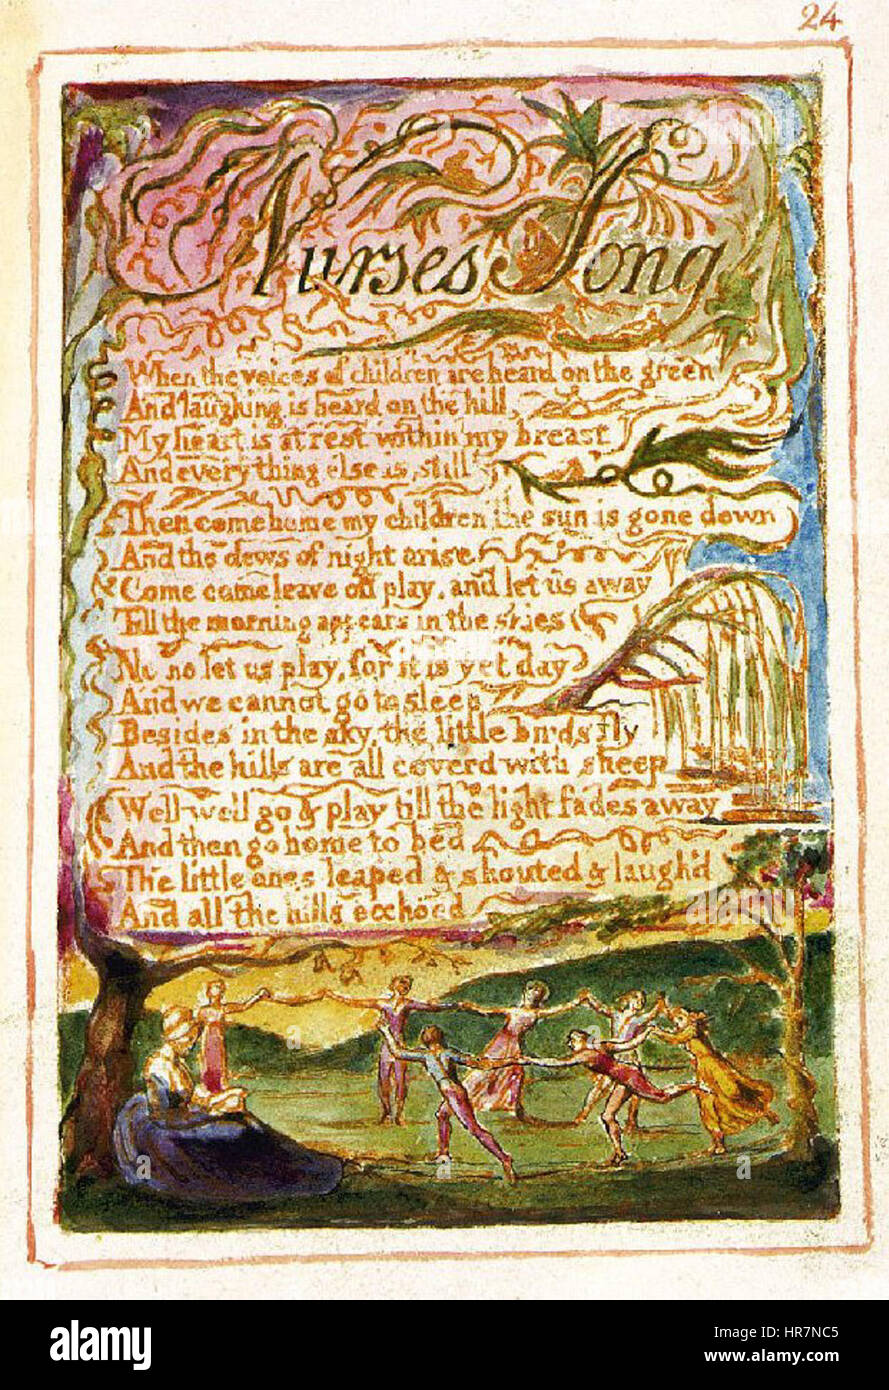 24
Nurses Song
When the voices of children are heard on the green
And laughing is heard on the hill,
My heart is at rest within my breast
And every thing else is still
Then come home my children the sun is gone down
And the dews of night arise
Come come leave off play, and let us away
Till the morning appears in the skies
No no let us play, for it is yet day
And we cannot go to sleep
Besides in the sky, the little birds fly
And the hills are all coverd with sheep
Well well go & play till the light fades away
And then go home to bed
The little ones leaped & shouted & laugh'd
And all the hills ecchoed
alamy
Image ID: HR7NC5
www.alamy.com